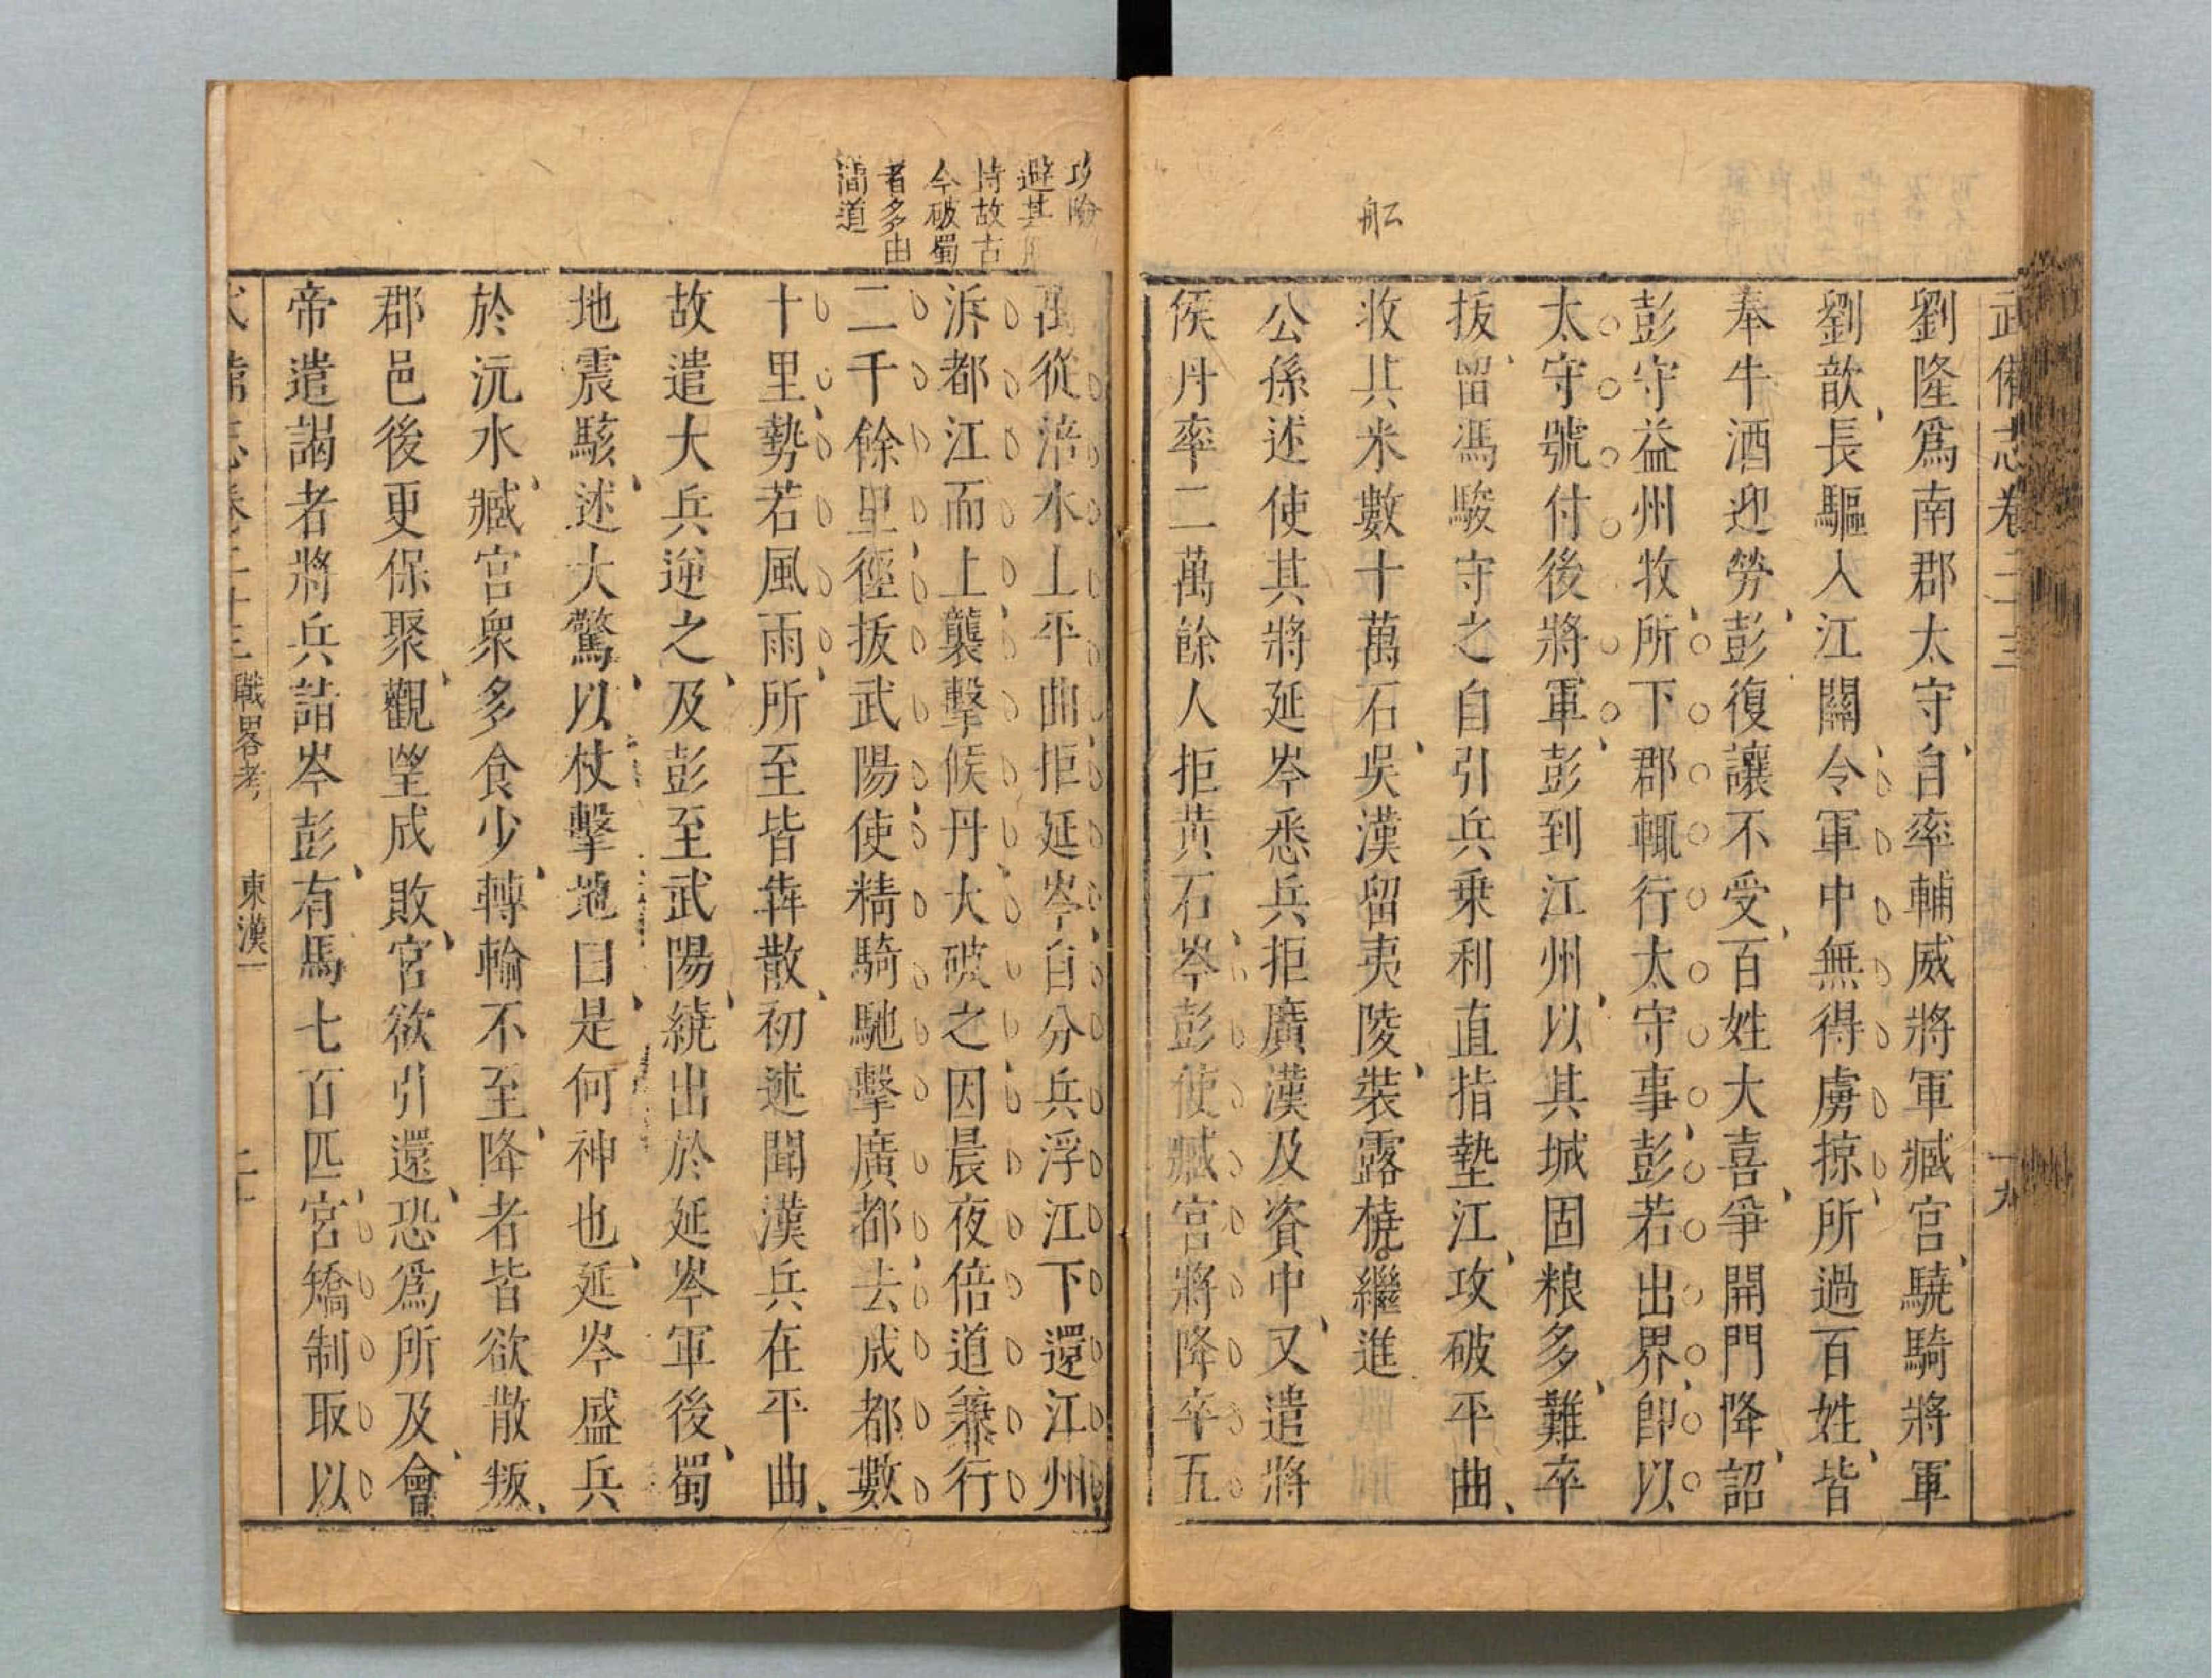 武備志卷二十三
十九
劉隆爲南郡太守自率輔威將軍臧宮驍騎將軍
劉歆長驅入江關令軍中無得虜掠所過百姓皆
奉牛酒迎勞彭復讓不受百姓大喜爭開門降詔
彭守益州牧所下郡輒行太守事彭若出界卽以
太守號付後將軍彭到江州以其城固粮多難卒
拔留馮駿守之自引兵乗利直指墊江攻破平曲
收其米數十萬石吳漢留夷陵裝露橈繼進
舩
公孫述使其將延岑悉兵拒廣漢及資中又遣將
侯丹率二萬餘人拒黃石岑彭使臧宮將降卒五
攻險
避其
恃故古
今破蜀
者多由
間道
萬從涪水上平曲拒延岑自分兵浮江下還江州
泝都江而上襲擊候丹大破之因晨夜倍道兼行
二千餘里徑拔武陽使精騎馳擊廣都去成都數
十里勢若風雨所至皆犇散初述聞漢兵在平曲
故遣大兵逆之及彭至武陽繞出於延岑軍後蜀
地震駭述大驚以杖擊地曰是何神也延岑盛兵
於沅水臧宮衆多食少轉輸不至降者皆欲散叛
郡邑後更保聚觀望成敗宮欲引還恐爲所及會
帝遣謁者將兵詣岑彭有馬七百匹宮矯制取以
武備志卷二十三 戰畧考 東漢一 二十